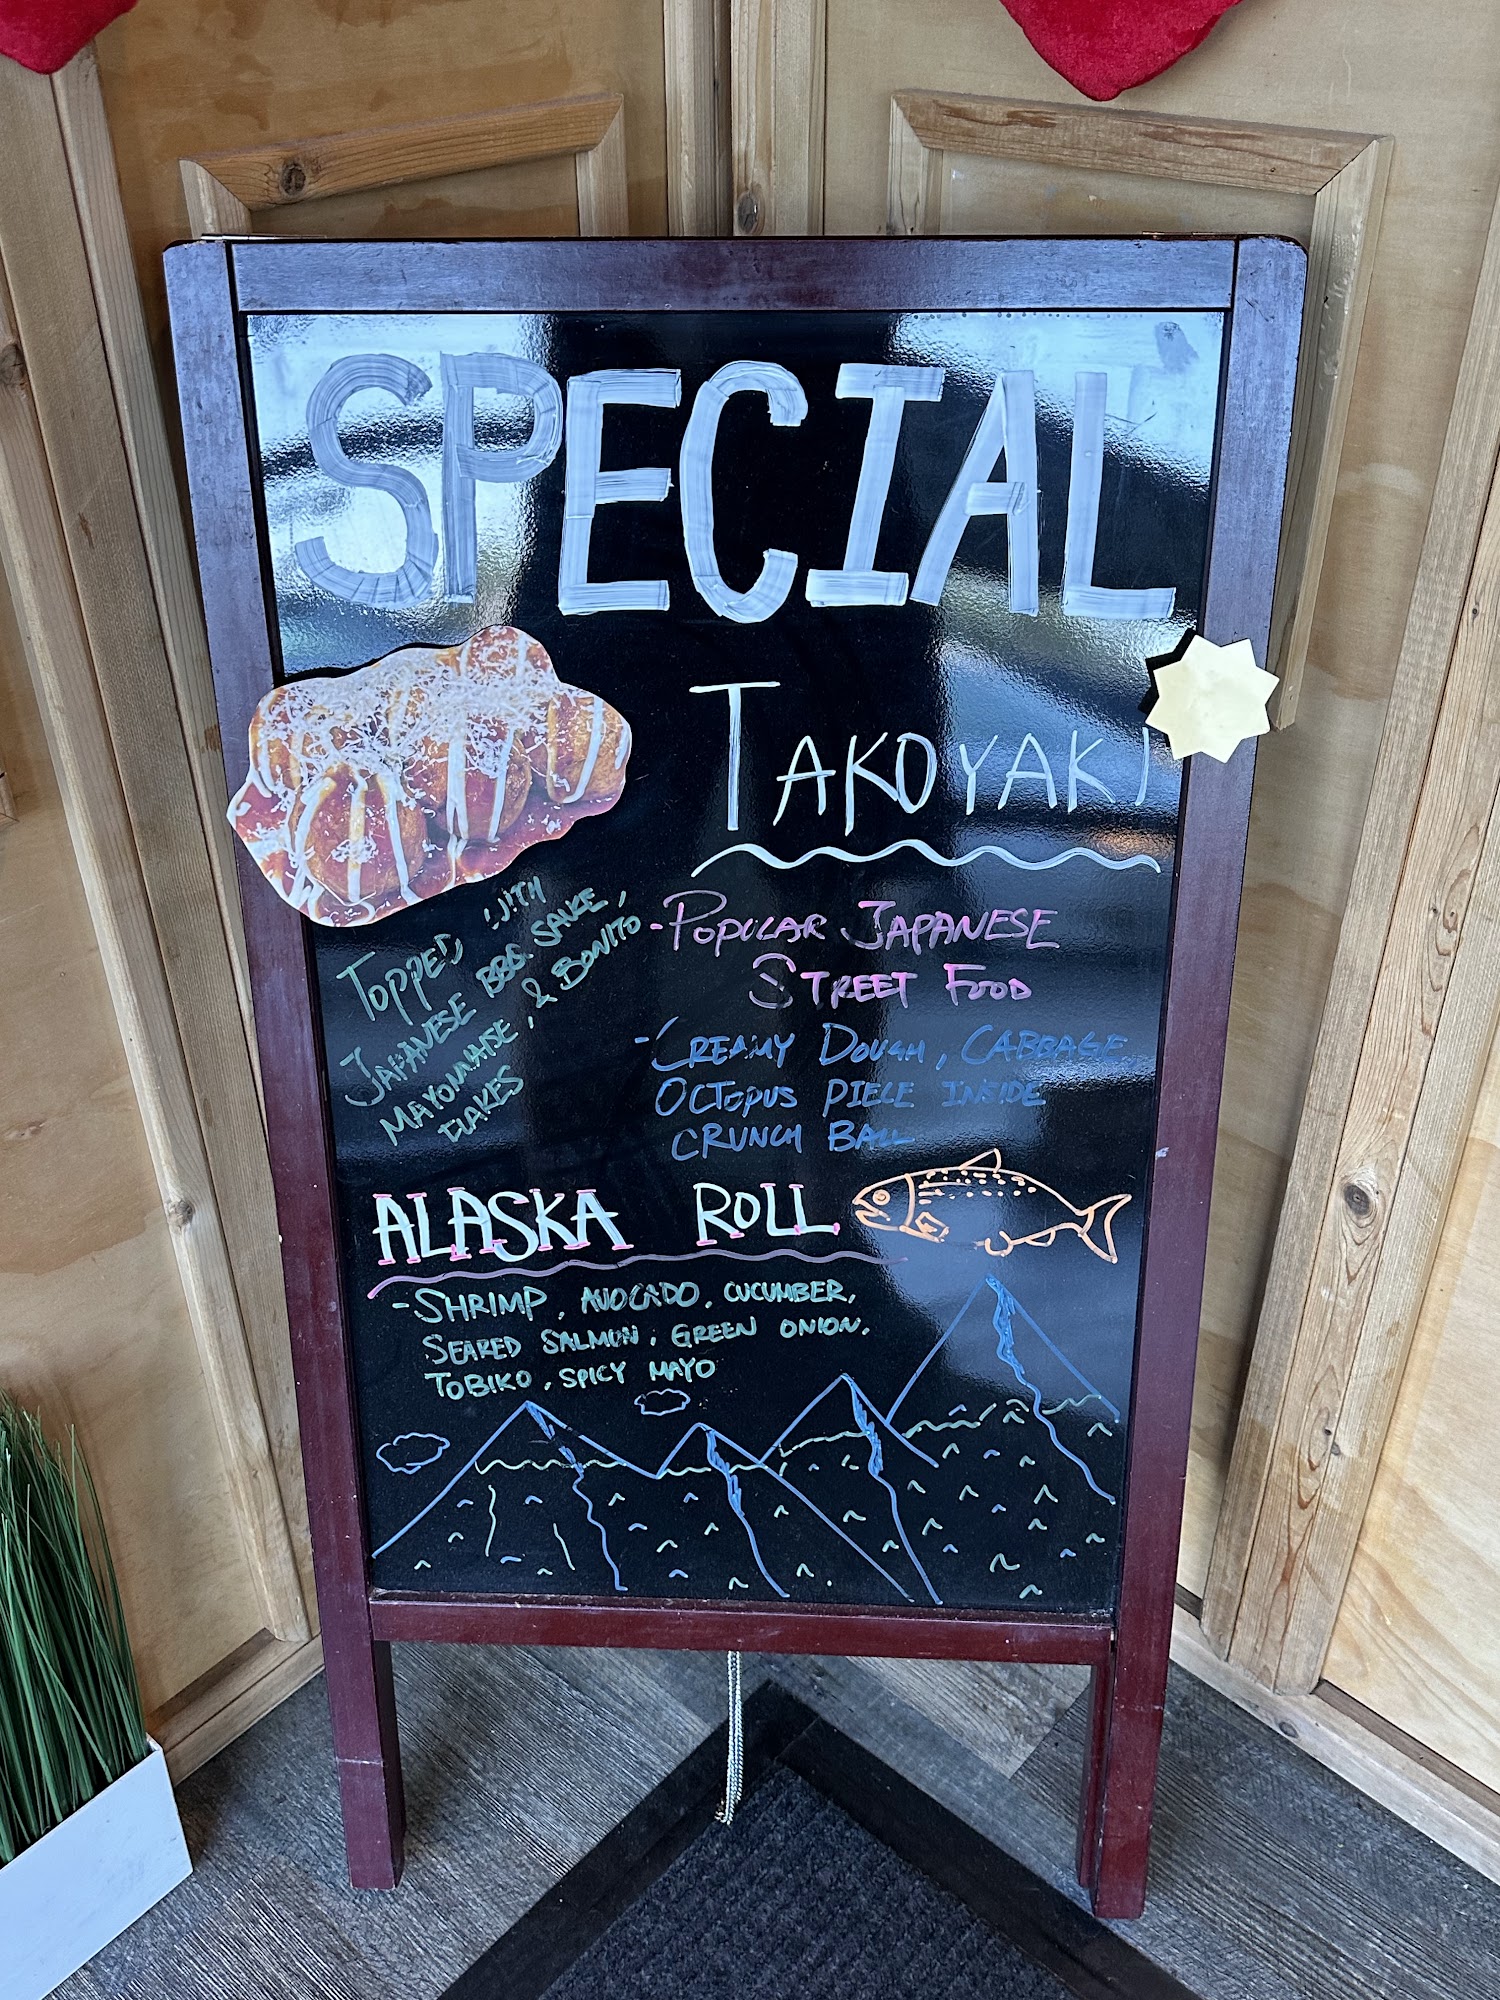 SPECIAL
TAKOYAKI
TOPPED WITH
JAPANESE BBQ SAUCE,
MAYONNAISE, & BONITO
FLAKES
- POPULAR JAPANESE
STREET FOOD
- CREAMY DOUGH, CABBAGE
OCTOPUS PIECE INSIDE
CRUNCH BALL
ALASKA ROLL
- SHRIMP, AVOCADO, CUCUMBER,
SEARED SALMON, GREEN ONION,
TOBIKO, SPICY MAYO